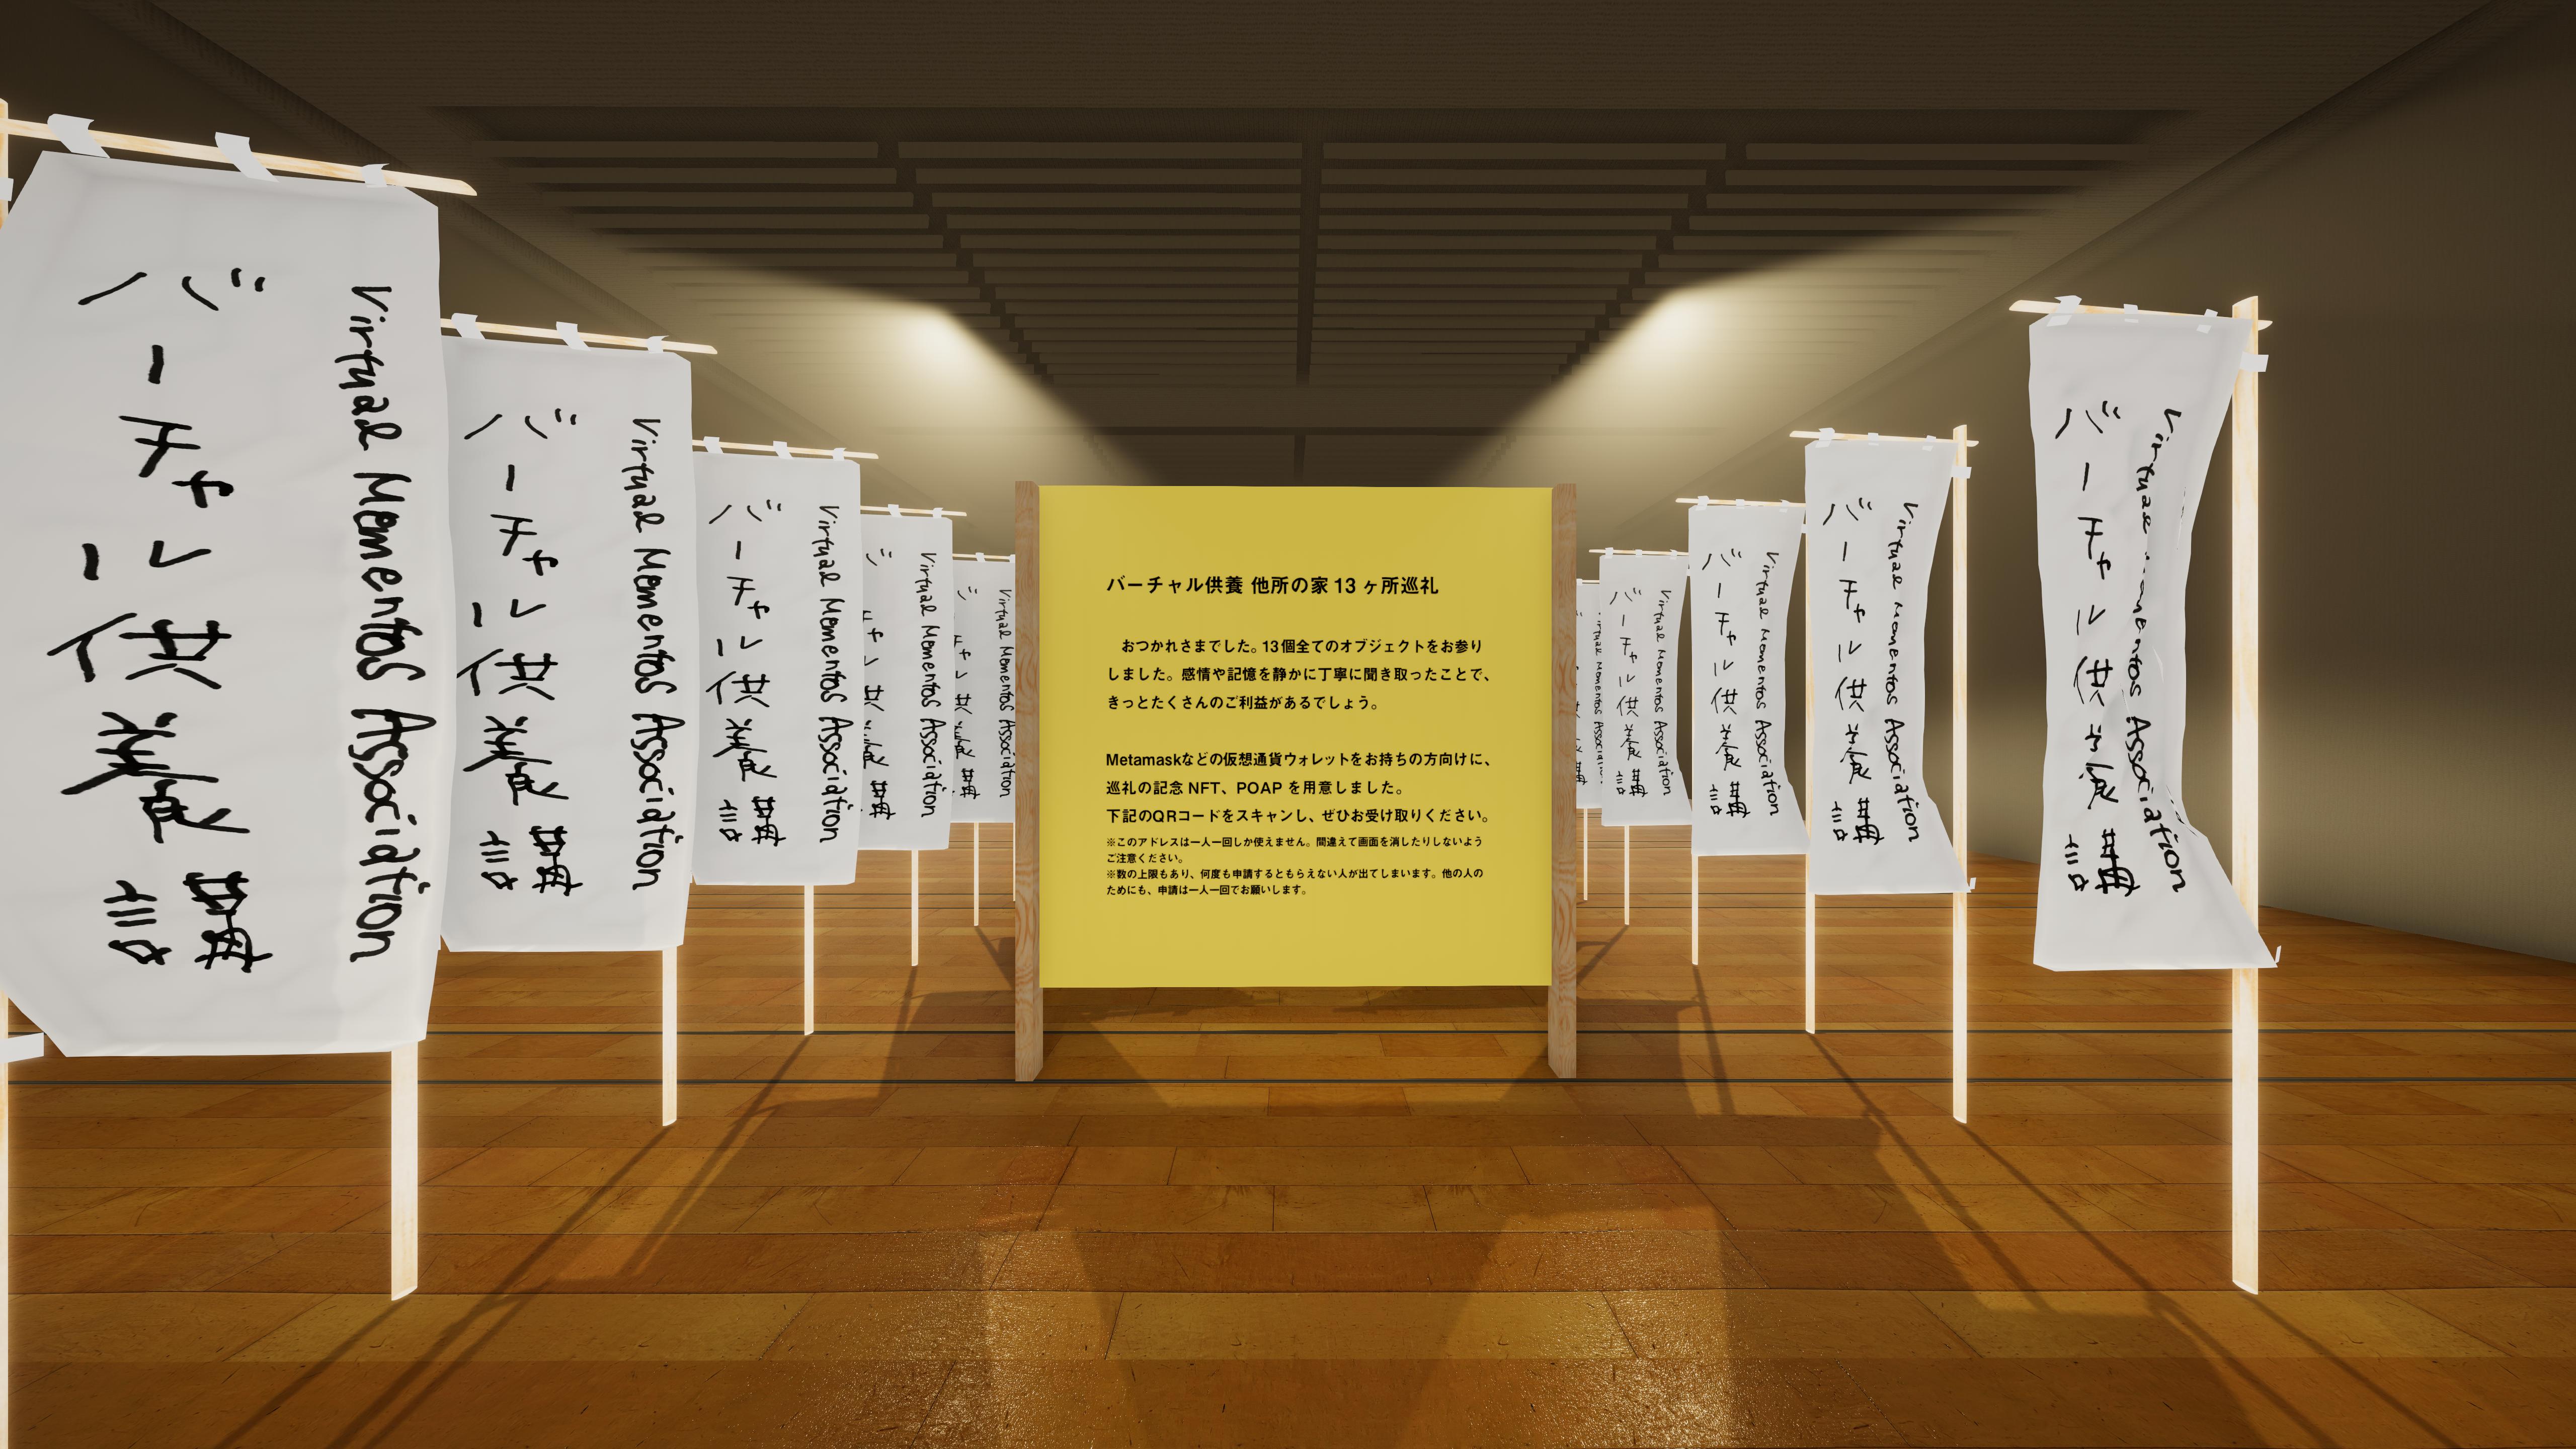 バーチャル供養講
Virtual Mementos Association
バーチャル供養講
Virtual Mementos Association
バーチャル供養講
Virtual Mementos Association
Virtual Mementos Association
Virtual Mementos Association
バーチャル供養 他所の家13ヶ所巡礼
おつかれさまでした。13個全てのオブジェクトをお参り
しました。感情や記憶を静かに丁寧に聞き取ったことで、
きっとたくさんのご利益があるでしょう。
Metamaskなどの仮想通貨ウォレットをお持ちの方向けに、
巡礼の記念 NFT、POAP を用意しました。
下記のQRコードをスキャンし、ぜひお受け取りください。
※このアドレスは一人一回しか使えません。間違えて画面を消したりしないよう
ご注意ください。
※数の上限もあり、何度も申請するともらえない人が出てしまいます。他の人の
ためにも、申請は一人一回でお願いします。
Virtual Mementos Association
バーチャル供養講
Virtual Mementos Association
バーチャル供養講
Virtual Mementos Association
バーチャル供養講
Virtual Mementos Association
バーチャル供養講
Virtual Mementos Association